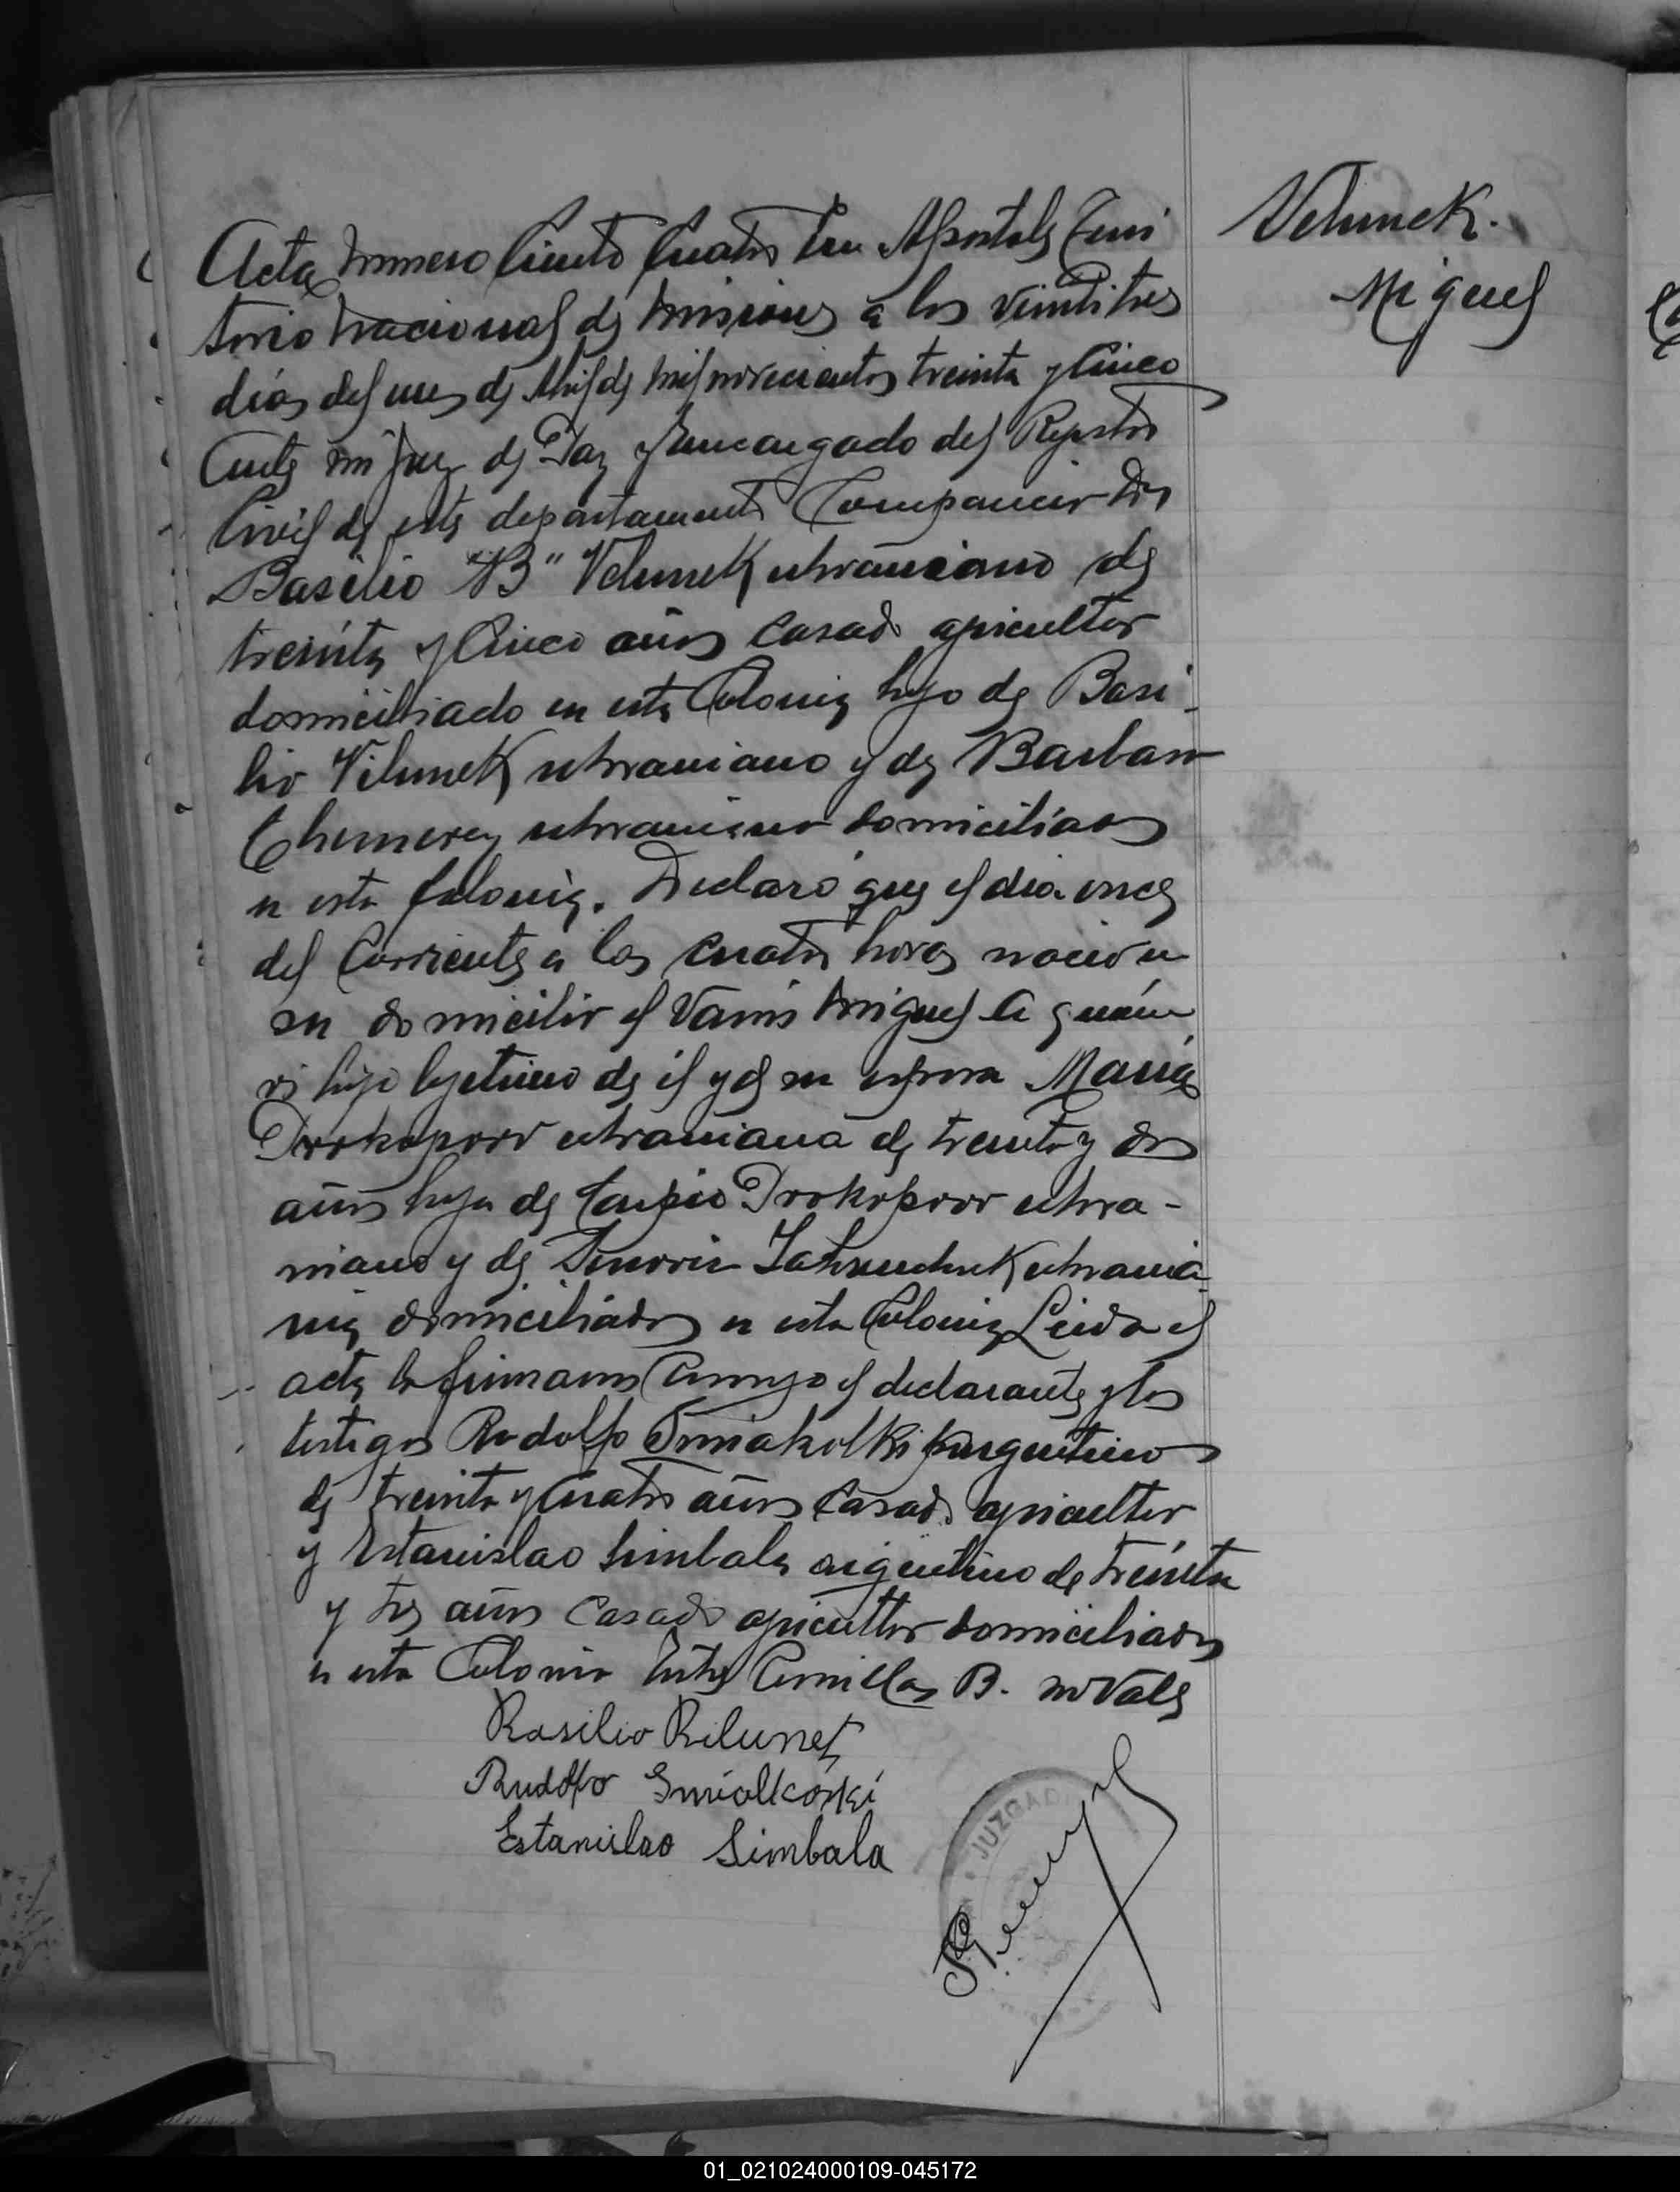 Velunek.
Miguel
Acta número Ciento Cuatro En Apostoles Terri
torio Nacional de Misiones a los veintitres
días del mes de Abril de mil novecientos treinta y Cinco
Ante mi Juez de Paz y Encargado del Registro
Civil de este departamento Compareció Don
Basilio "B" Velunek ukraniano de
treinta y Cinco años Casado agricultor
domiciliado en esta Colonia hijo de Basi-
lio Velunek ukraniano y de Barbara
ukraniana domiciliados
en esta Colonia. Declaró que el día once
del Corriente a las cuatro horas nació en
su domicilio el Varón Miguel a quien
vi hijo legitimo de él y de su esposa María
Prokopow ukraniana de treinta y dos
años hija de Prokopow ukra-
niano y de ukrania
na domiciliados en esta Colonia Leida el
acta la firmaron Conmigo el declarante y los
testigos Rodolfo argentino
de treinta y Cuatro años Casado agricultor
y Estanislao Simbala argentino de treinta
y tres años Casado agricultor domiciliados
en esta Colonia Entre Comillas B. no Vale
Basilio Bilunek
Rudolfo Smialkoski
Estanislao Simbala
JUZGADO
01_021024000109-045172